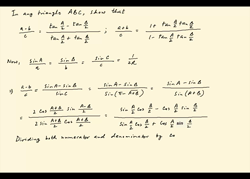 In any triangle ABC, show that
a-b/c = (tan A/2 - tan B/2)/(tan A/2 + tan B/2) ; a+b/c = (1 + tan A/2 tan B/2)/(1 - tan A/2 tan B/2)
Now, sin A/a = sin B/b = sin C/c = 1/2R
1) a-b/c = (sin A - sin B)/sin C = (sin A - sin B)/sin(π - A+B) = (sin A - sin B)/sin(A+B)
= (2 cos A+B/2 sin A-B/2)/(2 sin A+B/2 cos A+B/2) = (sin A/2 cos B/2 - cos A/2 sin B/2)/(sin A/2 cos B/2 + cos A/2 sin B/2)
Dividing both numerator and denominator by co